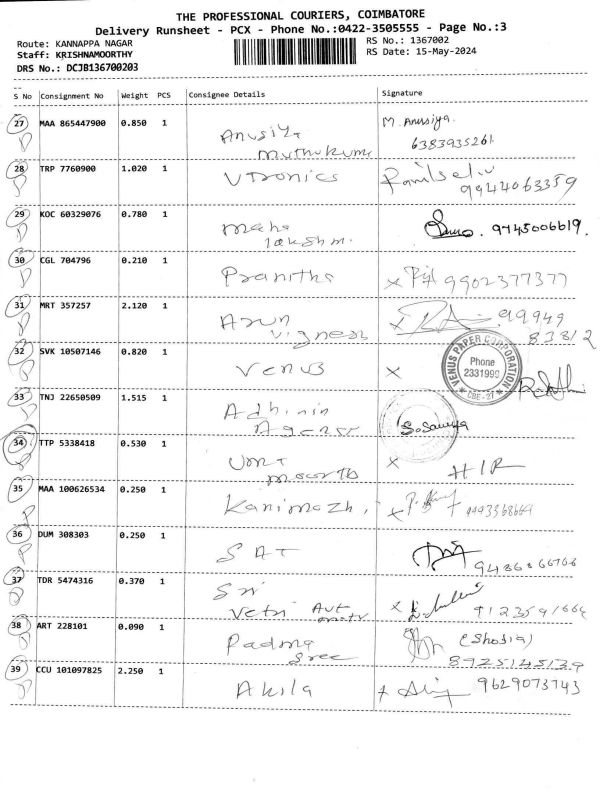 THE PROFESSIONAL COURIERS, COIMBATORE
Delivery Runsheet - PCX - Phone No.:0422-3505555 - Page No.:3
Route: KANNAPPA NAGAR
RS No.: 1367002
Staff: KRISHNAMOORTHY
RS Date: 15-May-2024
DRS No.: DCJB136700203
S No Consignment No Weight PCS Consignee Details Signature
27 MAA 865447900 0.850 1 Anusiya M. Anusiya.
muthukumar 6383935261
28 TRP 7760900 1.020 1 VTronics
9944063359
29 KOC 60329076 0.780 1 maha
lakshmi 9745006619.
30 CGL 704796 0.210 1 Pranitha x 9902377377
31 MRT 357257 2.120 1 Arun x 99949
vignesh 83812
32 SVK 10507146 0.820 1 Venus x
VENUS PAPER CORPORATION
Phone
2331999
CBE-27
33 TNJ 22650509 1.515 1 Adhinin
Agency S. Sowmya
34 TTP 5338418 0.530 1 Uma x
moorthy HIR
35 MAA 100626534 0.250 1 Kanimozhi x
36 DUM 308303 0.250 1 SAT
37 TDR 5474316 0.370 1 Sri x
Vetri
38 ART 228101 0.090 1 Padma
Sree
39 CCU 101097825 2.250 1 Akila x 9629073743